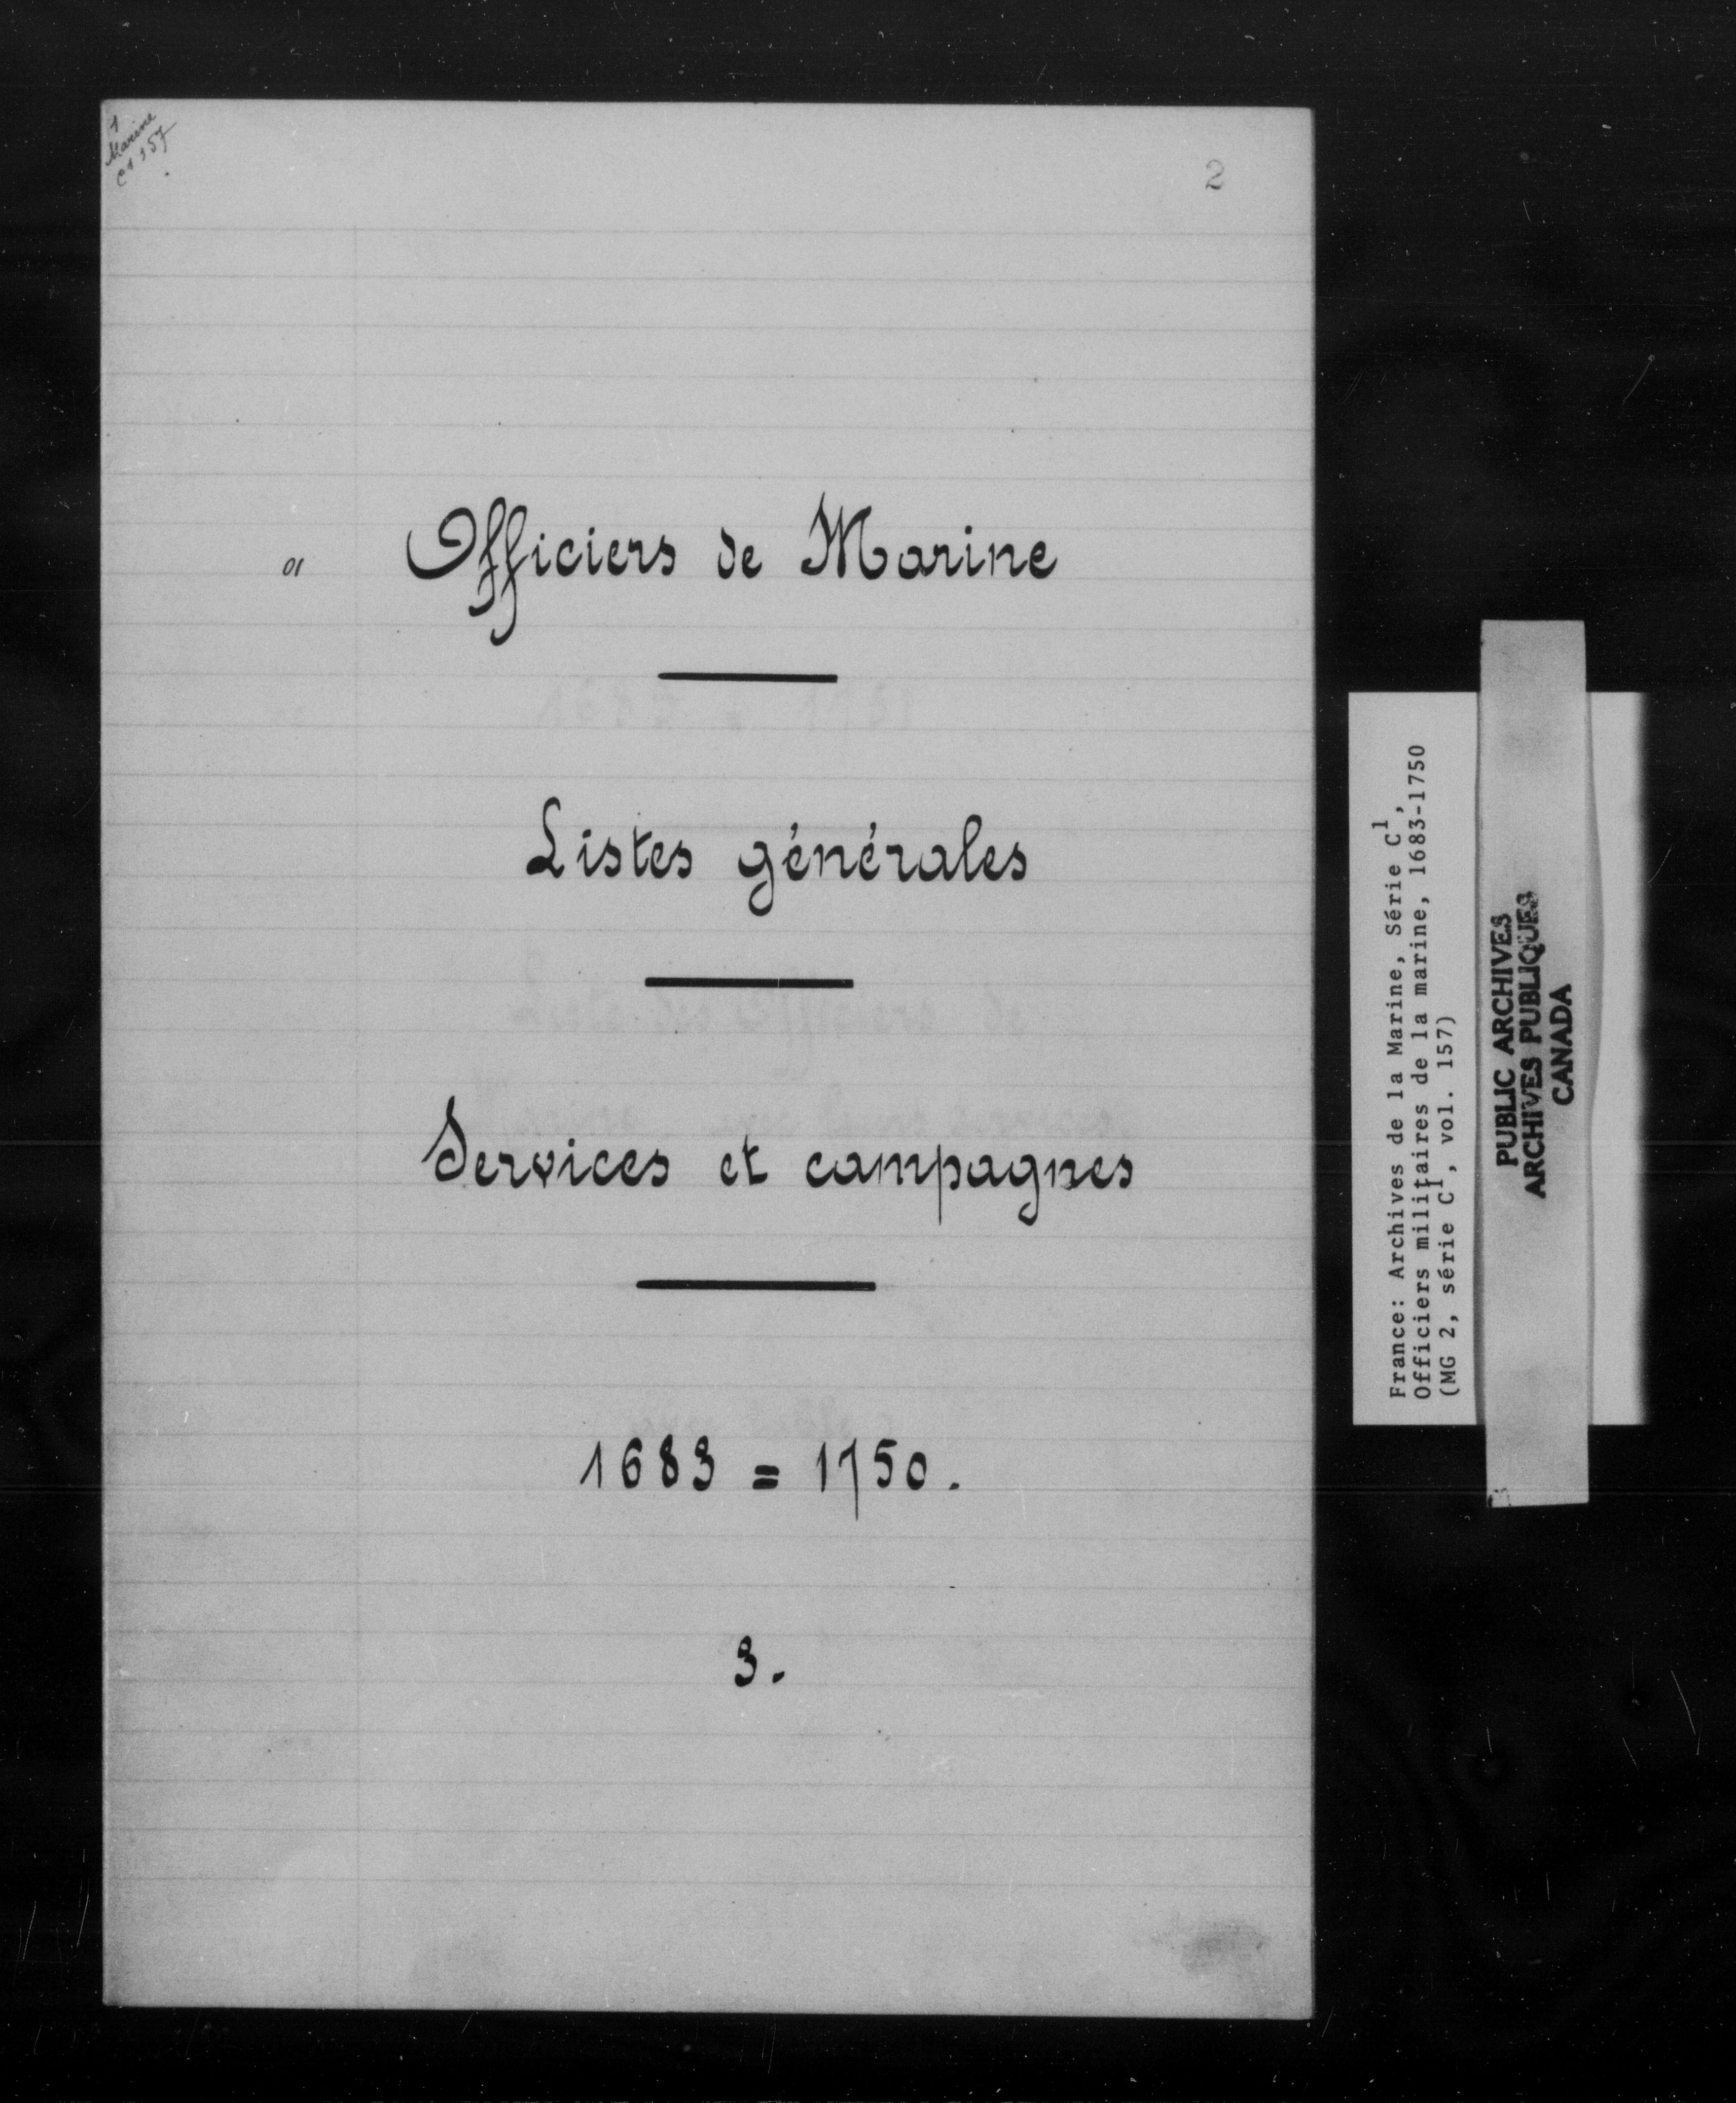 1
Marine
C1 157
2
Officiers de Marine
Listes générales
Services et campagnes
1683 = 1750.
3.
France: Archives de la Marine, Série C1,
Officiers militaires de la marine, 1683-1750
(MG 2, série C1, vol. 157)
PUBLIC ARCHIVES
ARCHIVES PUBLIQUES
CANADA